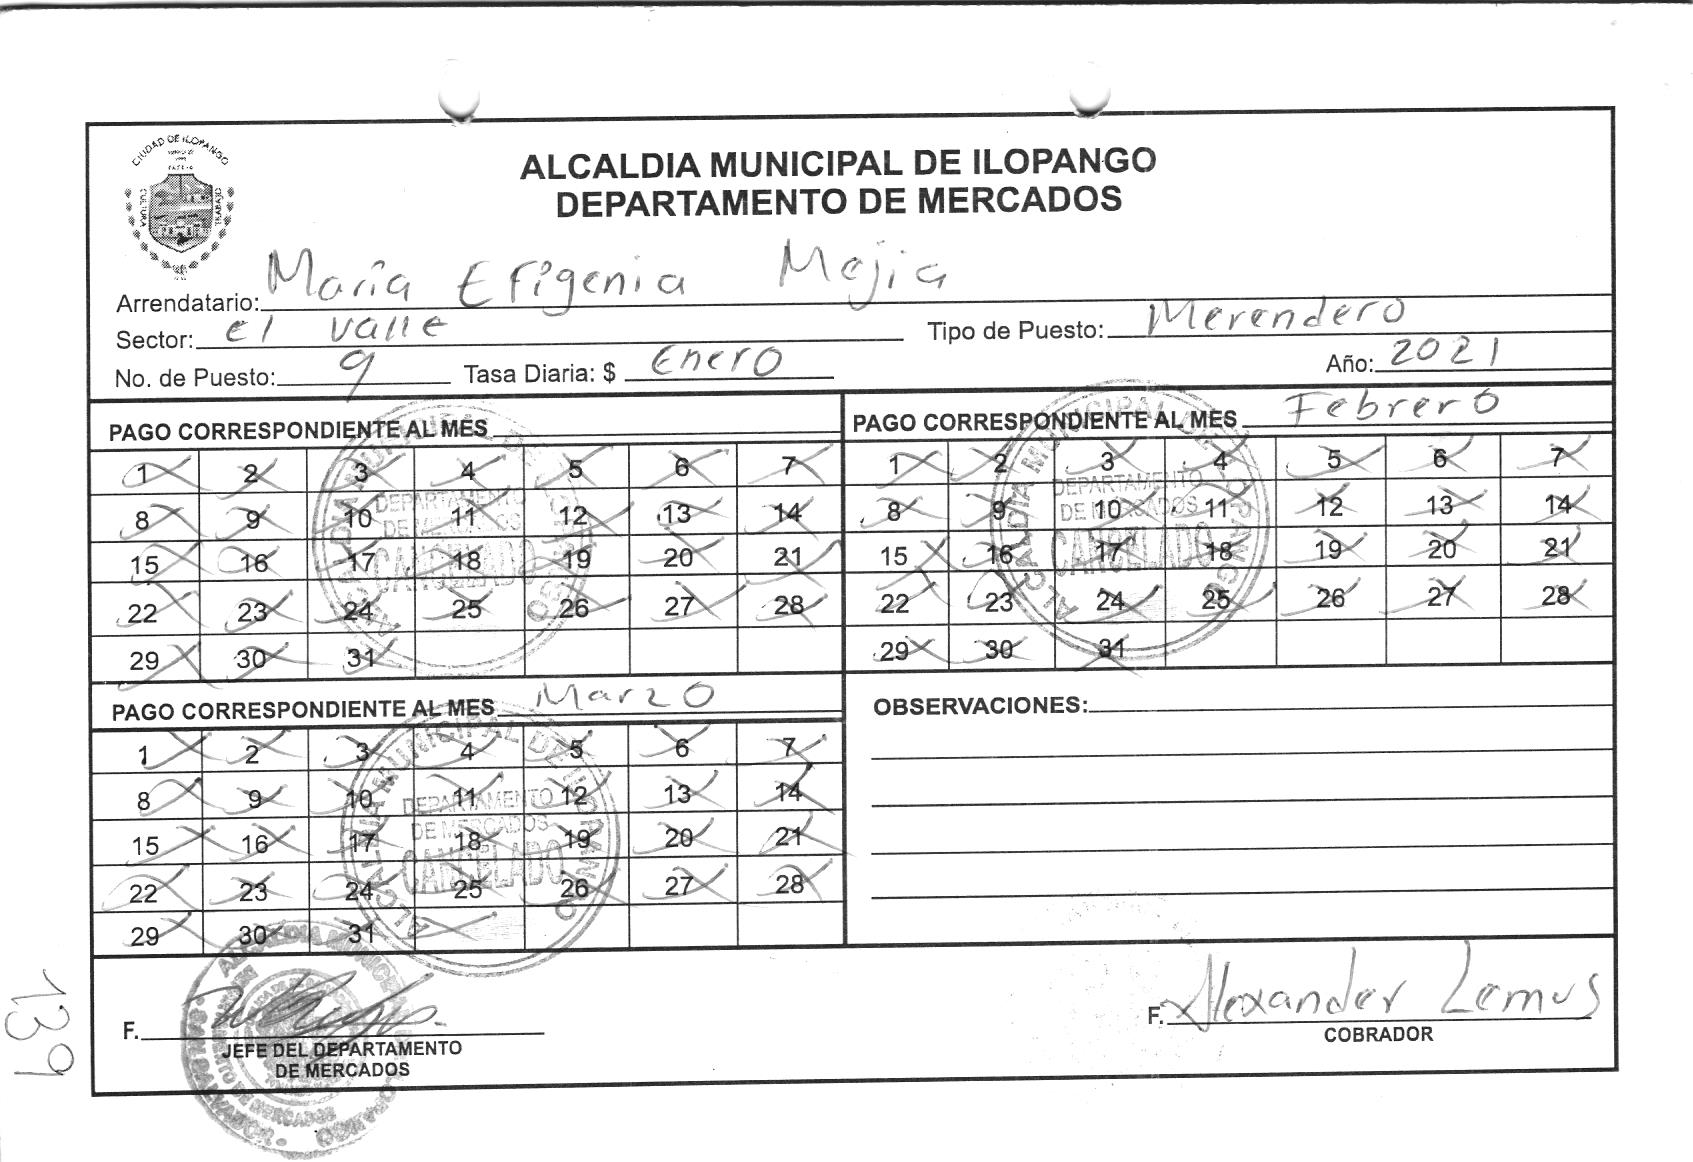 CIUDAD DE ILOPANGO
CULTURA
TRABAJO
ALCALDIA MUNICIPAL DE ILOPANGO
DEPARTAMENTO DE MERCADOS
Arrendatario: María Efigenia Mejia
Sector: el valle Tipo de Puesto: Merendero
No. de Puesto: 9 Tasa Diaria: $ Enero Año: 2021
PAGO CORRESPONDIENTE AL MES
1 2 3 4 5 6 7
8 9 10 11 12 13 14
15 16 17 18 19 20 21
22 23 24 25 26 27 28
29 30 31
ALCALDIA MUNICIPAL DE ILOPANGO
DEPARTAMENTO
DE MERCADOS
CANCELADO
PAGO CORRESPONDIENTE AL MES Febrero
1 2 3 4 5 6 7
8 9 10 11 12 13 14
15 16 17 18 19 20 21
22 23 24 25 26 27 28
29 30 31
ALCALDIA MUNICIPAL DE ILOPANGO
DEPARTAMENTO
DE MERCADOS
CANCELADO
PAGO CORRESPONDIENTE AL MES Marzo
1 2 3 4 5 6 7
8 9 10 11 12 13 14
15 16 17 18 19 20 21
22 23 24 25 26 27 28
29 30 31
ALCALDIA MUNICIPAL DE ILOPANGO
DEPARTAMENTO
DE MERCADOS
CANCELADO
OBSERVACIONES:
F.
JEFE DEL DEPARTAMENTO
DE MERCADOS
F. Alexander Lemus
COBRADOR
139